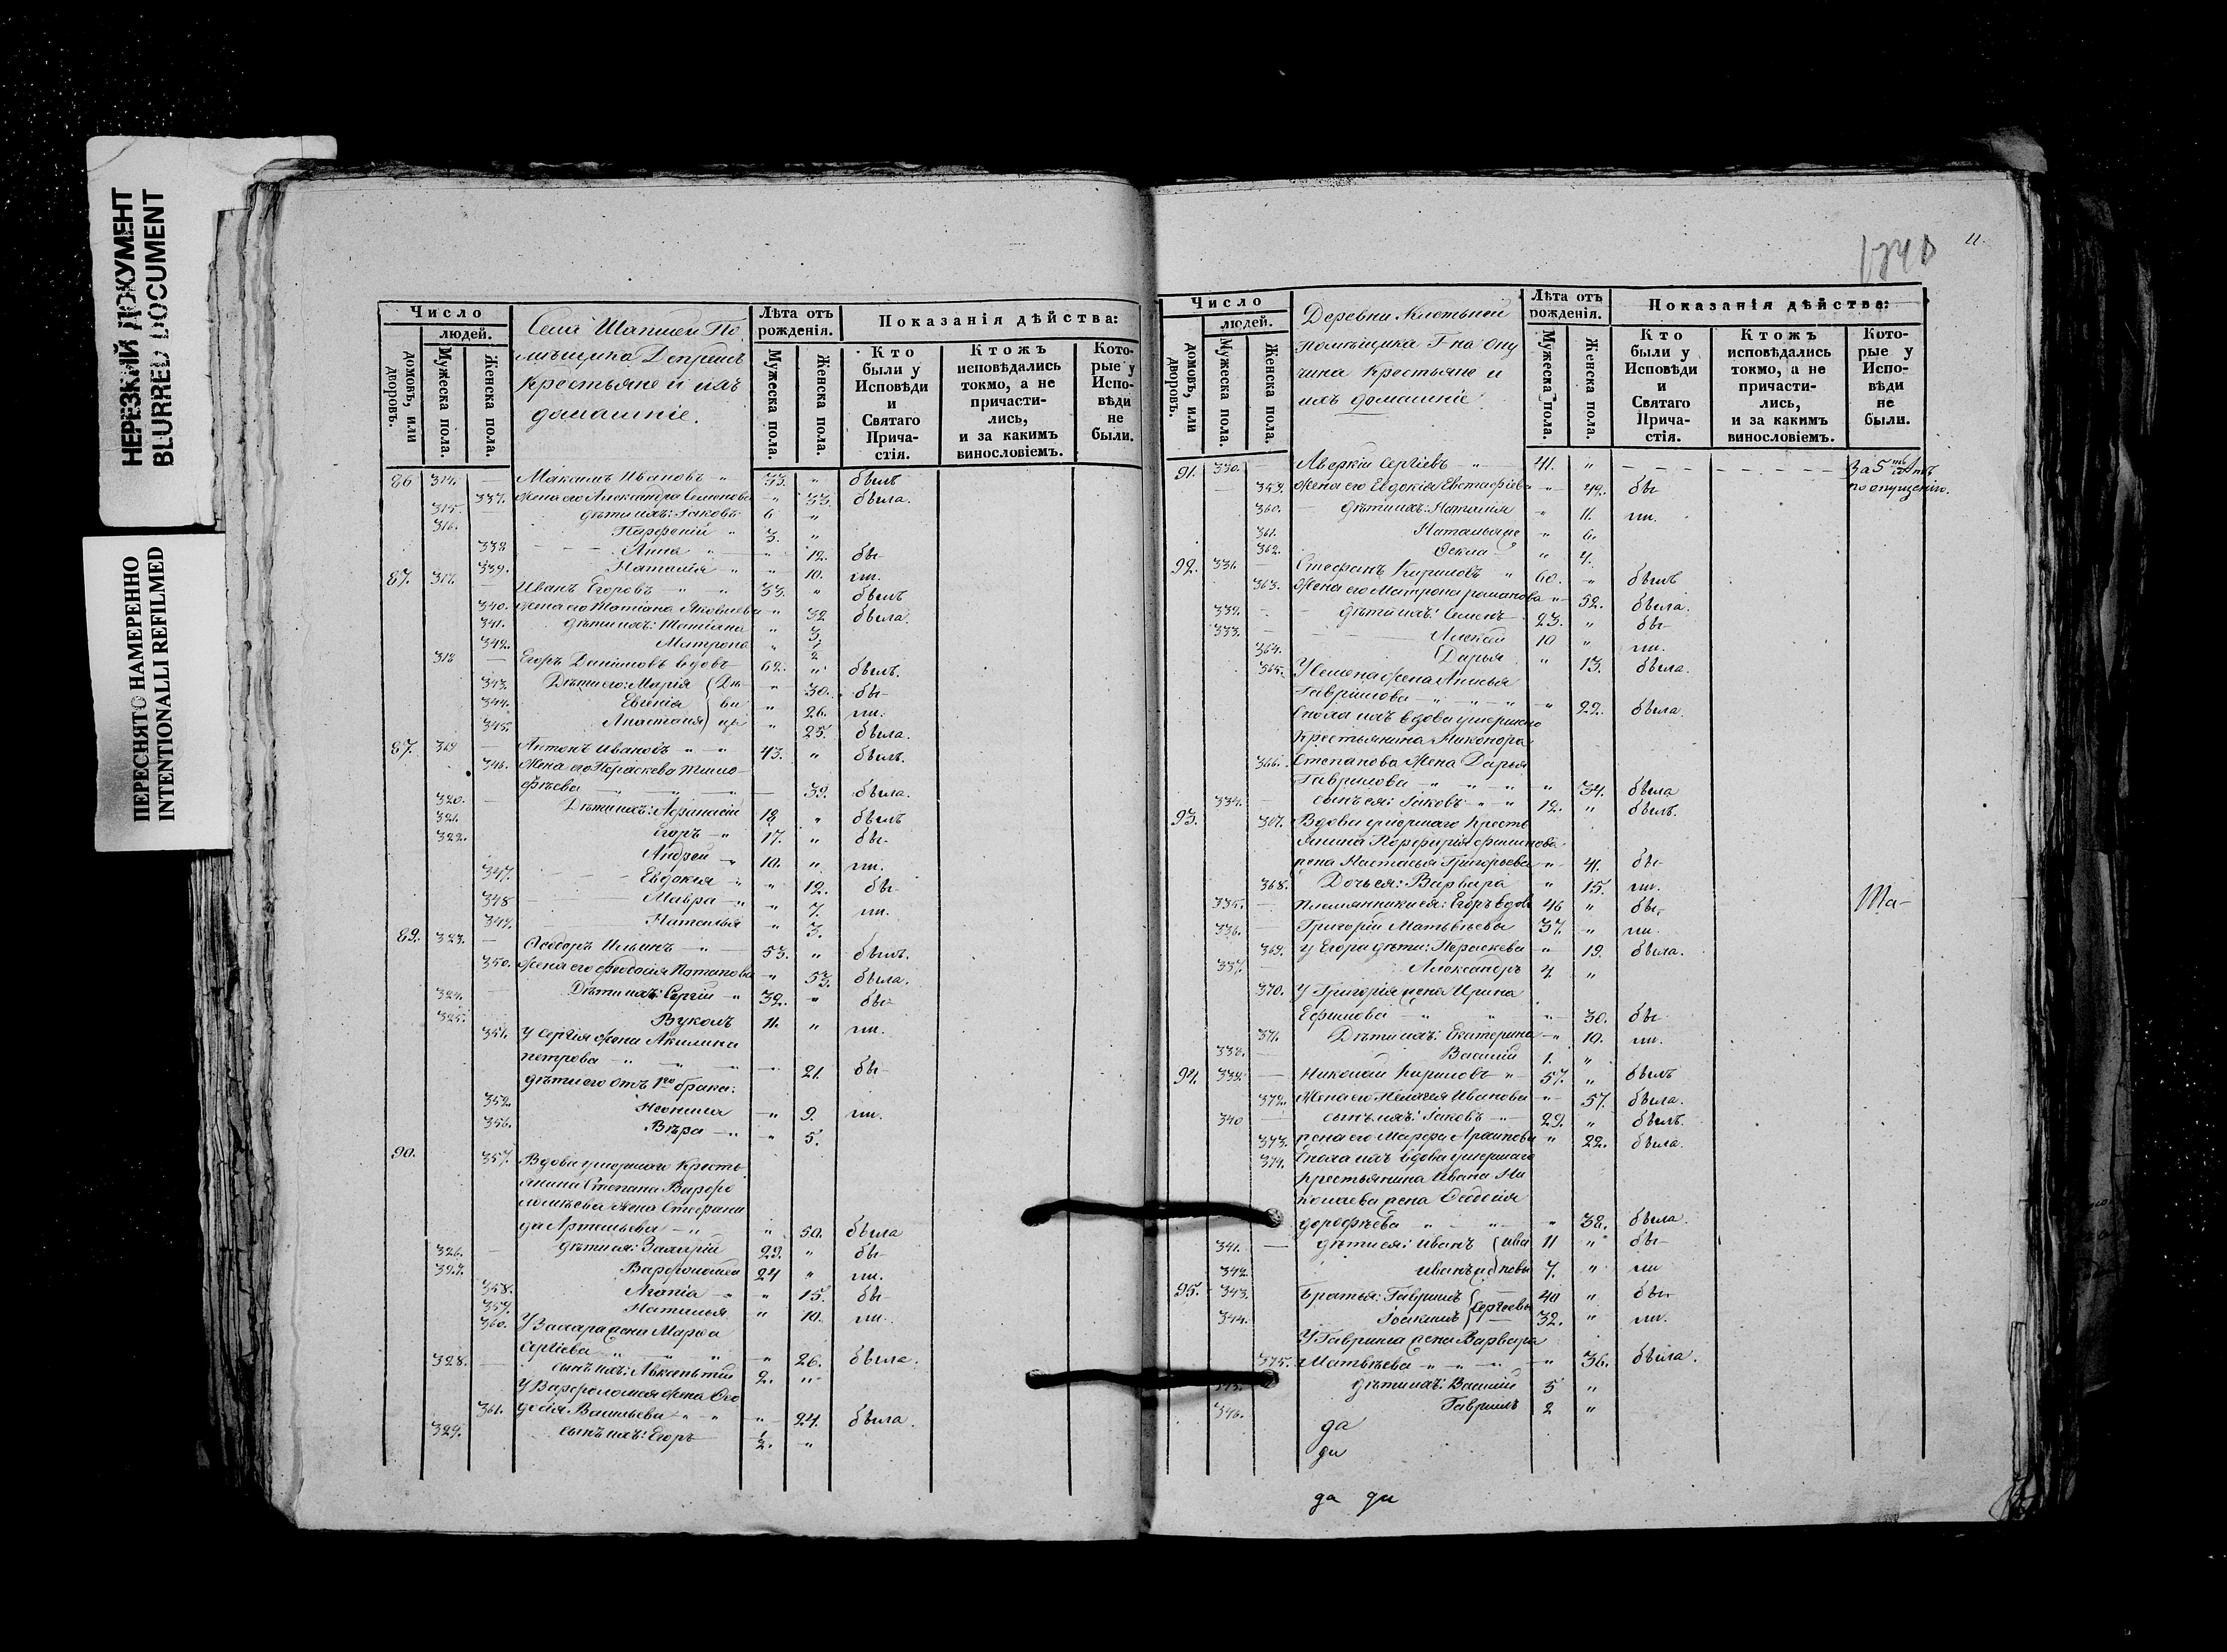 НЕРЕЗКИЙ ДОКУМЕНТ
BLURRED DOCUMENT
ПЕРЕСНЯТО НАМЕРЕННО
INTENTIONALLI REFILMED
Число
людей.
домовъ, или дворовъ.
Мужеска пола.
Женска пола.
Села По
мѣщика
Крестьяне и ихъ
домашніе.
Лѣта отъ рожденія.
Мужеска пола.
Женска пола.
Показанія дѣйства:
Кто были у Исповѣди и Святаго Прича-стія.
Ктожъ исповѣдались токмо, а не причасти-лись, и за какимъ винословіемъ.
Кото-рые у Испо-вѣди не были.
86 314. — Максимъ Ивановъ 33. " былъ
337. Жена его Александра Семенова " 33. была.
315. дѣти ихъ: Іаковъ 6 "
316. Парфеній 3. "
338 Анна " 12. бы-
339. Наталія " 10. ли.
87. 317. Иванъ Егоровъ 33. " былъ
340. Жена его Татіана Яковлева " 32 была.
341. дѣти ихъ: Татіана " 3.
342. Матрона " 2
318 — Егоръ Даніиловъ вдовъ 62. " былъ.
343. Дѣти его: Марія Дѣ- " 30. бы-
344. Евгенія ви " 26. ли.
345. Анастасія цы " 25. была.
87. 319 — Антонъ Ивановъ 43. " былъ.
346. Жена его Параскева Тимо-
фѣева — 39. была.
320. — Дѣти ихъ: Афанасій 18 " былъ
321. Егоръ 17. " бы-
322. Андрей 10. " ли.
347. Евдокія " 12. бы-
348 Мавра " 7. ли.
349. Наталья " 3.
89. 323. — Ѳеодоръ Ильинъ 53. " былъ.
350. Жена его Феодосія Потапова " 53. была.
324. — Дѣти ихъ: Сергій 32. " бы-
325. Вуколъ 11. " ли.
351. У Сергія жена Акилина
петрова " 21. бы-
дѣти его отъ 1го брака:
352. Неонила " 9. ли.
356. Вѣра " 5.
90. 357. Вдова умершаго Кресть
янина Стефана Варфо
ломѣева жена Стефани
да Артемьева " 50. была
326. — дѣти ея: Захарій 29. " бы-
327. Варфоломей 24 " ли.
358. Агапія " 15. бы-
359. Наталья " 10. ли.
360. У Захара жена Марѳа
Сергіева " 26. была.
328. — сынъ ихъ: 2. "
У Варфоломея жена Ѳео
361. досія Васильева " 24. была.
329. сынъ ихъ: Егоръ 1/2. "
11.
Число
людей.
домовъ, или дворовъ.
Мужеска пола.
Женска пола.
Деревни
помѣщика Г-на
Крестьяне и
ихъ домашніе
Лѣта отъ рожденія.
Мужеска пола.
Женска пола.
Показанія дѣйства:
Кто были у Исповѣди и Святаго Прича-стія.
Ктожъ исповѣдались токмо, а не причасти-лись, и за какимъ винословіемъ.
Кото-рые у Испо-вѣди не были.
91. 330. — Аверкій Сергіевъ 41. "
За 5ть лѣтъ
по опущенію.
Жена его Евдокія Евстафіева " 42. бы-
360. дѣти ихъ: Наталія " 11. ли.
361. Наталья же " 6.
362. Ѳекла " 4.
92. 331. — Стефанъ Кириловъ 60. " былъ
363. Жена его Матрона романова " 52. была.
332. дѣти ихъ: Семенъ 23. " бы-
333. Алексей 10 " ли.
364. Дарья " 13. была.
365. У Семена жена Анисья
Гаврилова " 22. была.
Снохи ихъ вдова умершаго
Крестьянина Никонора
366. Степанова Жена Дарья
Гаврилова " 34. была
334. — сынъ ея: Іаковъ 12. " былъ.
93. 367. Вдова умершаго Кресть
янина Порфирія
жена Настасья Григорьева " 41. бы-
368. Дочь ея: Варвара " 15. ли.
335. — Племянники ея: Егоръ вдовъ 46 " бы-
336. — Григорій Матвѣевы 37. " ли.
369. у Егора дѣти: Параскева " 19. была.
337. Александръ 4. "
370. У Григорія жена Ирина
Ефимова " 30. бы-
371. Дѣти ихъ: Екатерина " 10. ли.
338. Василій 1. "
94. 339. — Николай Кириловъ 57. " былъ
372. Жена его Пелагея Иванова " 57. была.
340 — сынъ ихъ: Іаковъ 29. " былъ.
373. жена его Марфа " 22. была.
374. Сноха ихъ вдова умершаго
Крестьянина Ивана Ни
колаева жена Ѳедосія
дорофѣева " 32. была.
341. — дѣти ея: Иванъ Ива 11 " бы-
342. Иванъ же новы 7. " ли
95. 343. Братья: Гавріилъ 40 " бы-
344. Іоакимъ Сергѣевы 32. " ли.
У Гавріила жена Варвара
375. Матвѣева " 36. была.
дѣти ихъ: Василій 5 "
346. Гавріилъ 2 "
да
ди
да ди